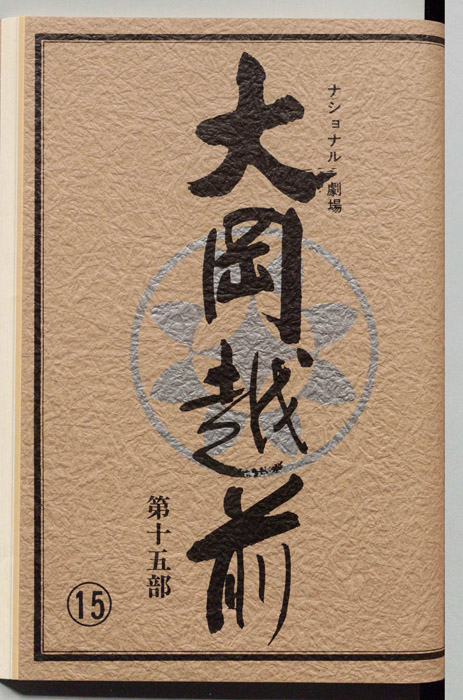 ナショナル劇場
大岡越前
第十五部
15